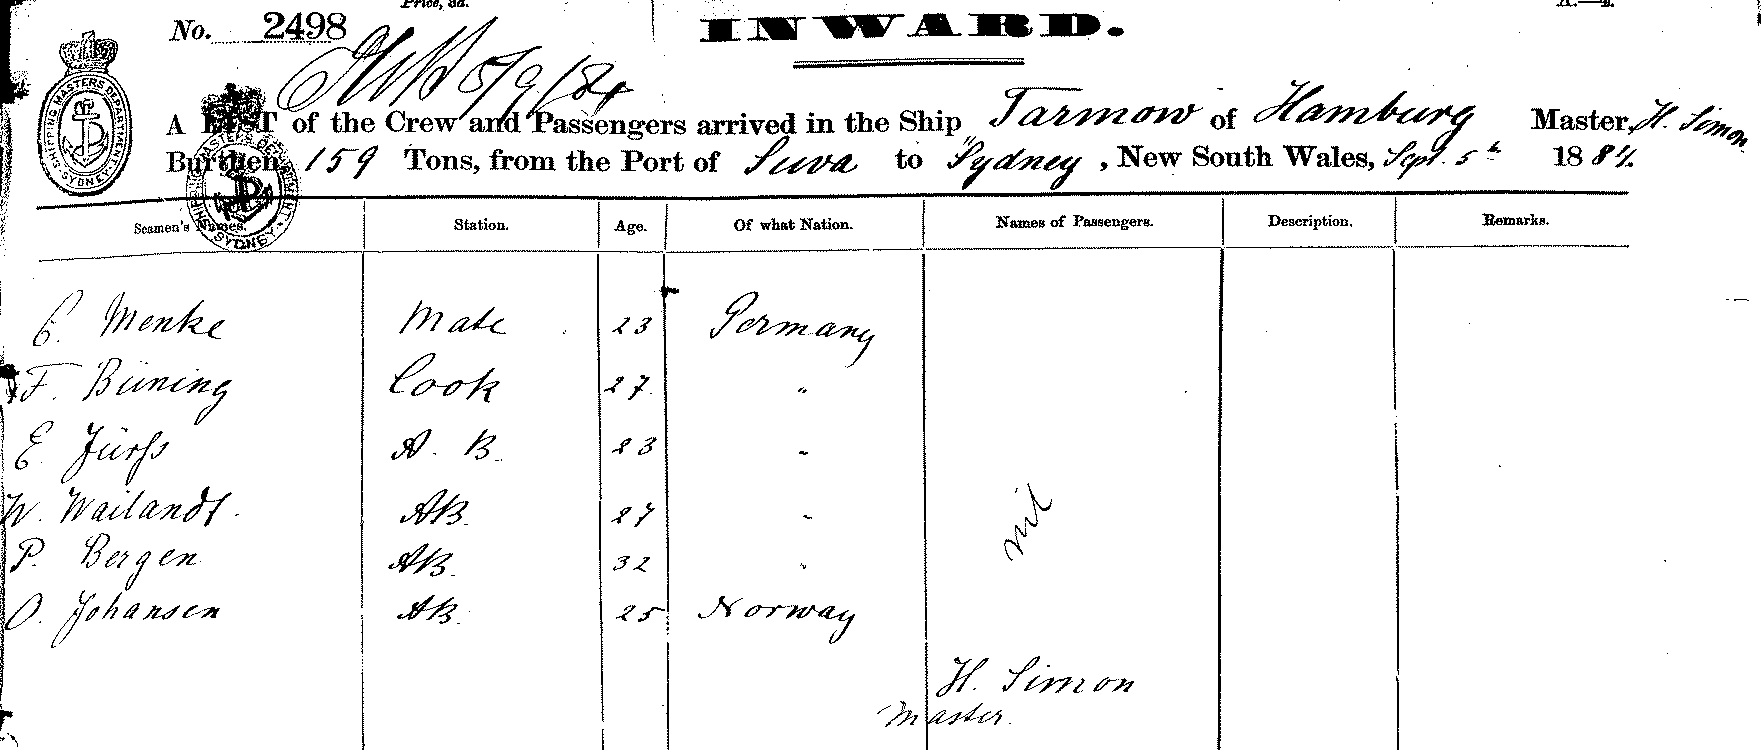 Price, 3d.
No. 2498
INWARD.
5/9/84
A LIST of the Crew and Passengers arrived in the Ship "Tarmow" of Hamburg Master, H. Simon
Burthen 159 Tons, from the Port of Suva to Sydney, New South Wales, Sept. 5th 1884.
SHIPPING MASTERS DEPARTMENT SYDNEY
Seamen's Names. Station. Age. Of what Nation. Names of Passengers. Description. Remarks.
Menke Mate 23 Germany
F. Büning Cook 27 "
E. Jürss A. B. 23 "
W. Wailandt. AB. 27 "
nil
P. Bergen AB. 32 "
O. Johansen AB. 25 Norway
H. Simon
Master.